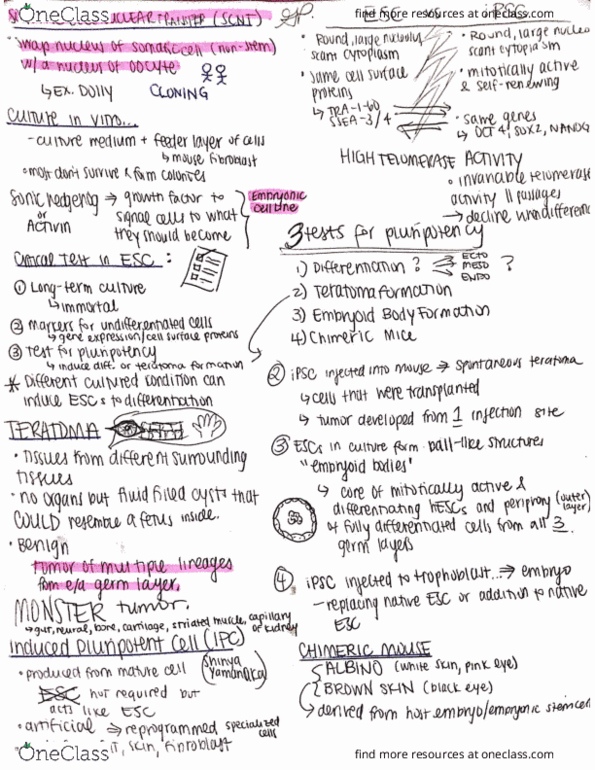 OneClass
find more resources at oneclass.com
NUCLEAR TRANSFER (SCNT)
swap nucleus of somatic cell (non-stem)
w/ a nucleus of oocyte
↳ EX. DOLLY CLONING
Culture in vitro...
- culture medium + feeder layer of cells
↳ mouse fibroblast
• most don't survive & form colonies
Sonic hedgehog → growth factor to
or
Activin
signal cells to what
they should become
Embryonic
cell line
Critical Test in ESC:
① Long-term culture
↳ immortal
② markers for undifferentiated cells
↳ gene expression/cell surface proteins
③ Test for pluripotency
↳ induce diff. or teratoma formation
* Different cultured condition can
induce ESCs to differentiation
TERATOMA
• tissues from different surrounding
tissues
• no organs but fluid filled cysts that
COULD resemble a fetus inside.
• Benign
tumor of multiple lineages
from e/a germ layer.
MONSTER tumor.
↳ gut, neural, bone, cartilage, striated muscle, capillary
or kidney
Induced Pluripotent Cell (IPC)
• produced from mature cell
(Shinya
Yamanaka)
ESC not required but
acts like ESC
• artificial ⇒ reprogrammed specialized
cells
skin, fibroblast
• Round, large nucleus,
scant cytoplasm
• Same cell surface
proteins
↳ TRA-1-60
SSEA-3/4
• Round, large nucleo
scant cytoplasm
• mitotically active
& self-renewing
• same genes
↳ OCT4, SOX2, NANOG
HIGH TELOMERASE ACTIVITY
• invariable telomerase
activity 11 passages
→ decline w
3 tests for pluripotency
1) Differentiation? ECTO
MESO
ENDO ?
2) Teratoma formation
3) Embryoid Body Formation
4) Chimeric Mice
② iPSC injected into mouse → spontaneous teratoma
↳ cells that were transplanted
↳ tumor developed from 1 injection site
③ ESCs in culture form ball-like structures
"embryoid bodies"
↳ core of mitotically active &
differentiating hESCs and periphory (outer
layer)
of fully differentiated cells from all 3
germ layers
④ iPSC injected to trophoblast... ⇒ embryo
- replacing native ESC or addition to native
ESC
CHIMERIC MOUSE
ALBINO (white skin, pink eye)
BROWN SKIN (black eye)
↳ derived from host embryo/embryonic stemcell
OneClass
find more resources at oneclass.com